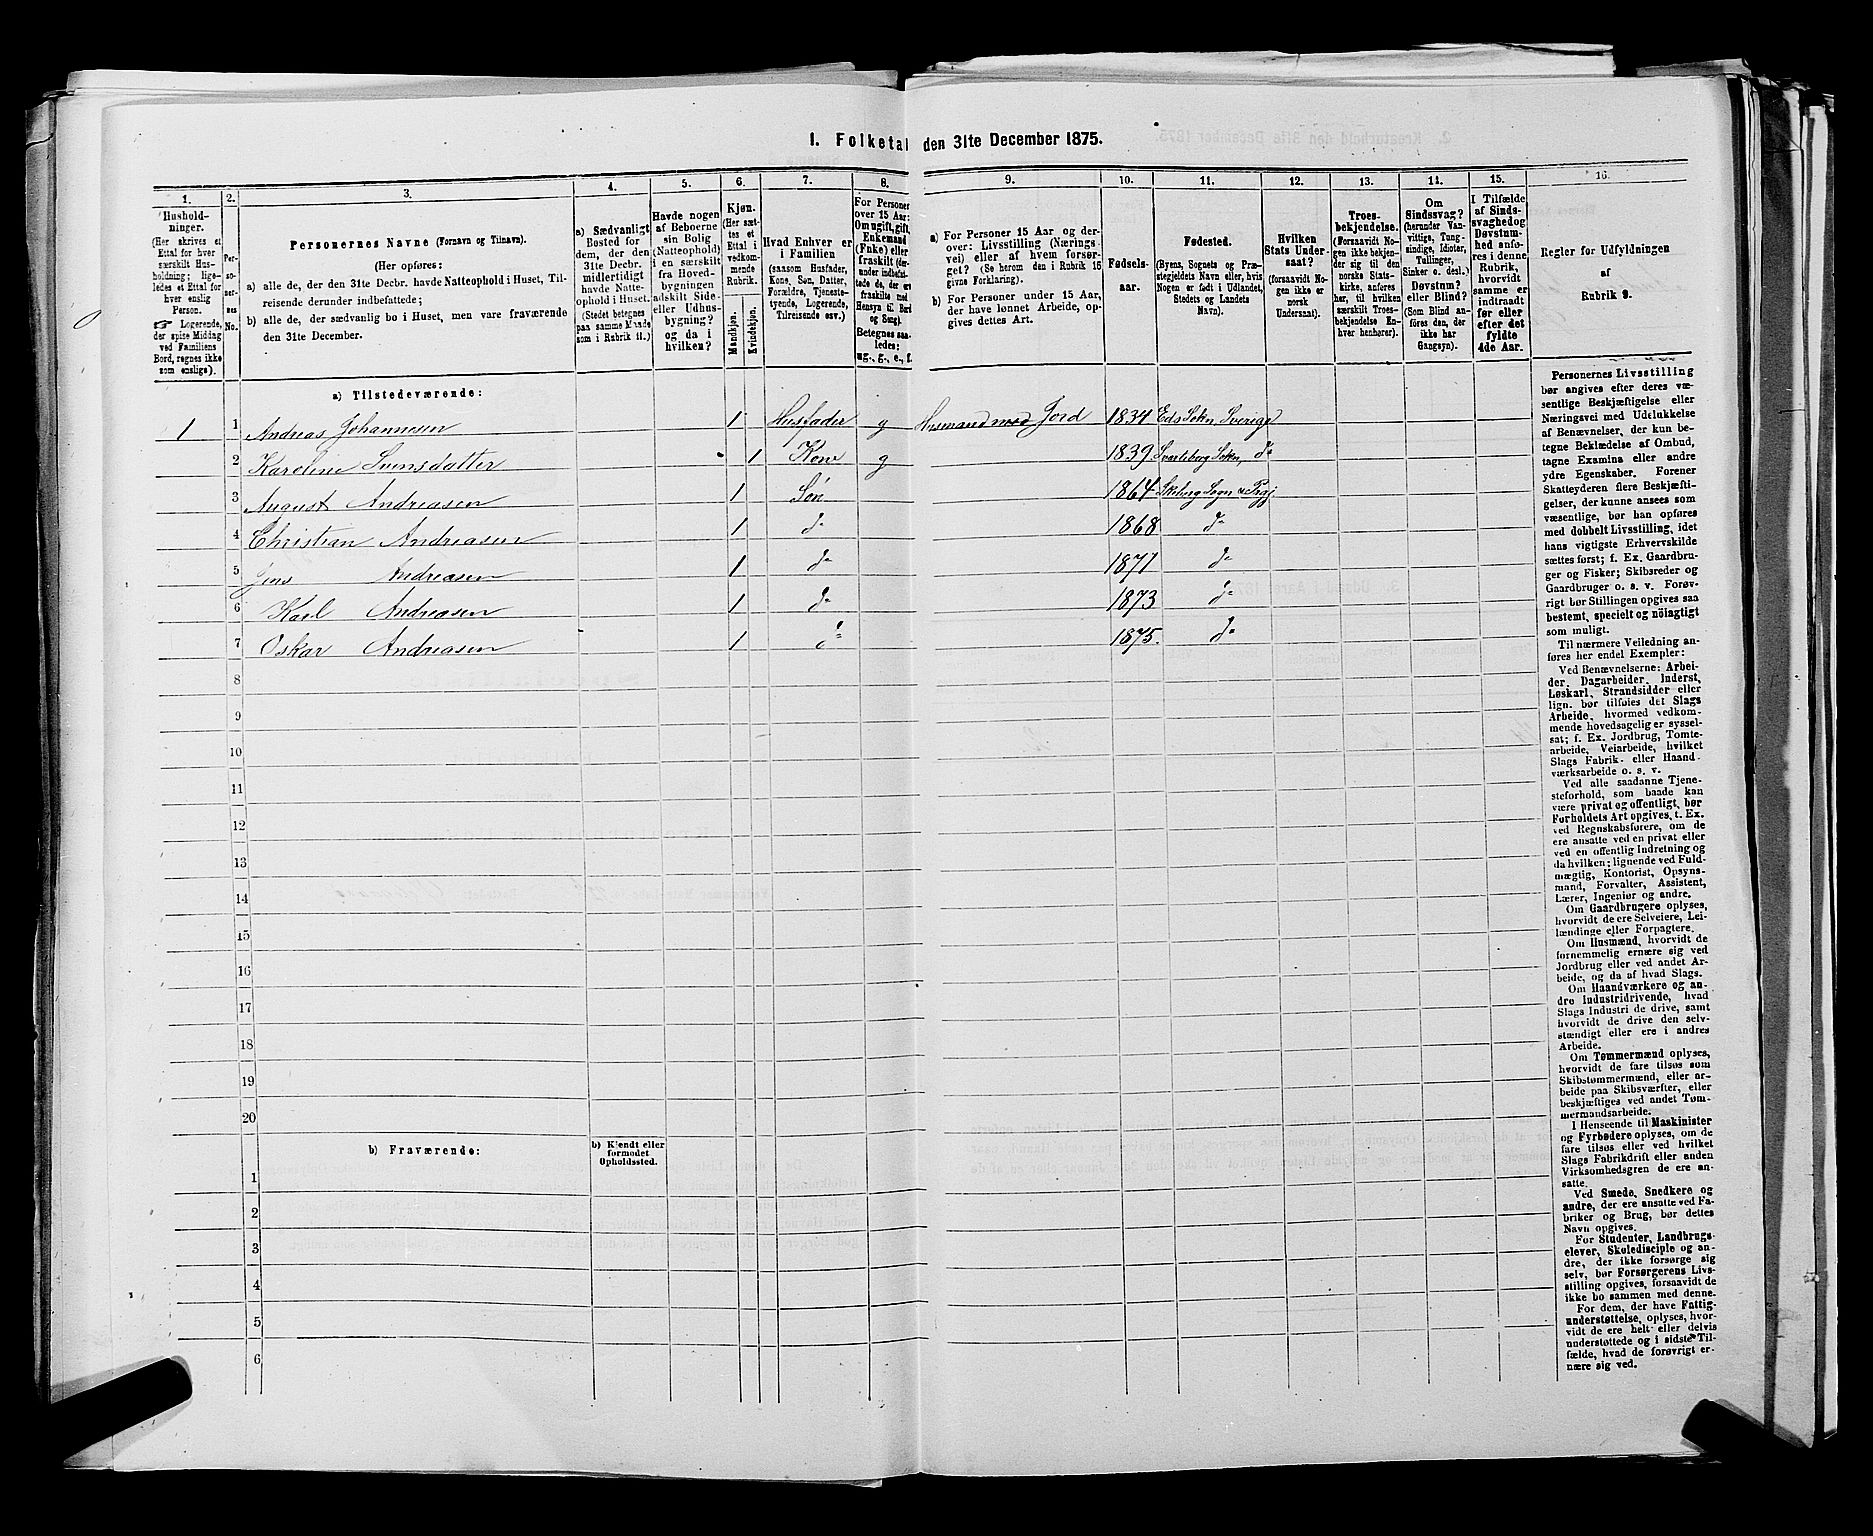 1. Folketal den 31te December 1875.
1. 2. 3. 4. 5. 6. 7. 8. 9. 10. 11. 12. 13. 14. 15. 16.
Hushold-
ninger.
(Her skrives et
Ettal for hver
særskilt Hus-
holdning; lige-
ledes et Ettal for
hver enslig
Person.
☞ Logerende,
der spise Middag
ved Familiens
Bord, regnes ikke
som enslige).
Per-
so-
ner-
nes
No.
Personernes Navne (Fornavn og Tilnavn).
(Her opføres:
a) alle de, der den 31te Decbr. havde Natteophold i Huset, Til-
reisende derunder indbefattede;
b) alle de, der sædvanlig bo i Huset, men vare fraværende
den 31te December.
a) Sædvanligt
Bosted for
dem, der den
31te Decbr.
midlertidigt
havde Natte-
ophold i Huset.
(Stedet betegnes
paa samme Maade
som i Rubrik 11.)
Havde nogen
af Beboerne
sin Bolig
(Natteophold)
i en særskilt
fra Hoved-
bygningen
adskilt Side-
eller Udhus-
bygning?
og da i
hvilken?
Kjøn.
(Her sæt-
tes et
Ettal i
vedkom-
mende
Rubrik.
Mandkjøn.
Kvindekjøn.
Hvad Enhver er
i Familien
(saasom Husfader,
Kone, Søn, Datter,
Forældre, Tjeneste-
tyende, Logerende,
Tilreisende osv.)
For Personer
over 15 Aar:
Om ugift, gift,
Enkemand
(Enke) eller
fraskilt (der-
under indbefat-
tede de, der ere
fraskilte med
Hensyn til Bord
og Seng).
Betegnes saa-
ledes:
ug., g., e., f.
a) For Personer 15 Aar og der-
over: Livsstilling (Nærings-
vei) eller af hvem forsør-
get? (Se herom den i Rubrik 16
givne Forklaring).
b) For Personer under 15 Aar,
der have lønnet Arbeide, op-
gives dettes Art.
Fødsels-
aar.
Fødested.
(Byens, Sognets og Præ-
stegjeldets Navn eller, hvis
Nogen er født i Udlandet,
Stedets og Landets
Navn).
Hvilken
Stats Under-
saat?
(forsaavidt No-
gen ikke er
norsk
Undersaat).
Troes-
bekjendelse.
(Forsaavidt No-
gen ikke bekjen-
der sig til den
norske Stats-
kirke, anføres
her, til hvilken
særskilt Troes-
bekjendelse En-
hver henhører).
Om
Sindssvag?
(herunder Van-
vittige, Tung-
sindige, Idioter,
Tullinger,
Sinker o. desl.)
Døvstum?
eller Blind?
(Som Blind an-
føres den, der
ikke har
Gangsyn).
I Tilfælde
af Sinds-
svaghed og
Døvstum-
hed anfø-
res i denne
Rubrik,
hvorvidt
samme er
indtraadt
før eller
efter det
fyldte
4de Aar.
Regler for Udfyldningen
af
Rubrik 9.
a) Tilstedeværende:
1 1 Andreas Johannesen 1 Husfader g Husmand med Jord 1834 Eds Sokn, Sverige
2 Karoline Svensdatter 1 Kone g 1839 Svarteborg Sokn, do
3 August Andreasen 1 Søn 1864 Skeberg Sogn & Prgj
4 Christian Andreasen 1 do 1868 do
5 Jens Andreasen 1 do 1871 do
6 Karl Andreasen 1 do 1873 do
7 Oskar Andreasen 1 do 1875. do
8
9
10
11
12
13
14
15
16
17
18
19
20
b) Fraværende:
b) Kjendt eller
formodet
Opholdssted.
1
2
3
4
5
6
Personernes Livsstilling
bør angives efter deres væ-
sentlige Beskjæftigelse eller
Næringsvei med Udelukkelse
af Benævnelser, der kun be-
tegne Beklædelse af Ombud,
tagne Examina eller andre
ydre Egenskaber. Forener
Skatteyderen flere Beskjæfti-
gelser, der kunne ansees som
væsentlige, bør han opføres
med dobbelt Livsstilling, idet
hans vigtigste Erhvervskilde
sættes først; f. Ex. Gaardbru-
ger og Fisker; Skibsreder og
Gaardbruger o. s. v. Forøv-
rigt bør Stillingen opgives saa
bestemt, specielt og nöiagtigt
som muligt.
Til nærmere Veiledning an-
føres her endel Exempler:
Ved Benævnelserne: Arbei-
der, Dagarbeider, Inderst,
Løskarl, Strandsidder eller
lign. bør tilføies det Slags
Arbeide, hvormed vedkom-
mende hovedsagelig er syssel-
sat; f. Ex. Jordbrug, Tomte-
arbeide, Veiarbeide, hvilket
Slags Fabrik- eller Haand-
værksarbeide o. s. v.
Ved alle saadanne Tjene-
steforhold, som baade kan
være privat og offentligt, bør
Forholdets Art opgives, t. Ex.
ved Regnskabsførere, om de
ere ansatte ved en privat eller
ved en offentlig Indretning og
da hvilken; lignende ved Fuld-
mægtig, Kontorist, Opsyns-
mand, Forvalter, Assistent,
Lærer, Ingeniør og andre.
Om Gaardbrugere oplyses,
hvorvidt de ere Selveiere, Lei-
lændinge eller Forpagtere.
Om Husmænd, hvorvidt de
fornemmelig ernære sig ved
Jordbrug eller ved andet Ar-
beide, og da af hvad Slags.
Om Haandværkere og an-
dre Industridrivende, hvad
Slags Industri de drive, samt
hvorvidt de drive den selv-
stændigt eller ere i andres
Arbeide.
Om Tømmermænd oplyses,
hvorvidt de fare tilsøs som
Skibstømmermænd, eller ar-
beide paa Skibsværfter, eller
beskjæftiges ved andet Tøm-
mermandsarbeide.
I Henseende til Maskinister
og Fyrbødere oplyses, om de
fare tilsøs eller ved hvilket
Slags Fabrikdrift eller anden
Virksomhedsgren de ere an-
satte.
Ved Smede, Snedkere og
andre, der ere ansatte ved Fa-
briker og Brug, bør dettes
Navn opgives.
For Studenter, Landbrugs-
elever, Skoledisciple og an-
dre, der ikke forsørge sig
selv, bør Forsørgerens Livs-
stilling opgives, forsaavidt de
ikke bo sammen med denne.
For dem, der have Fattig-
understøttelse, oplyses, hvor-
vidt de ere helt eller delvis
understøttede og i sidste Til-
fælde, hvad de forøvrigt er-
nære sig ved.